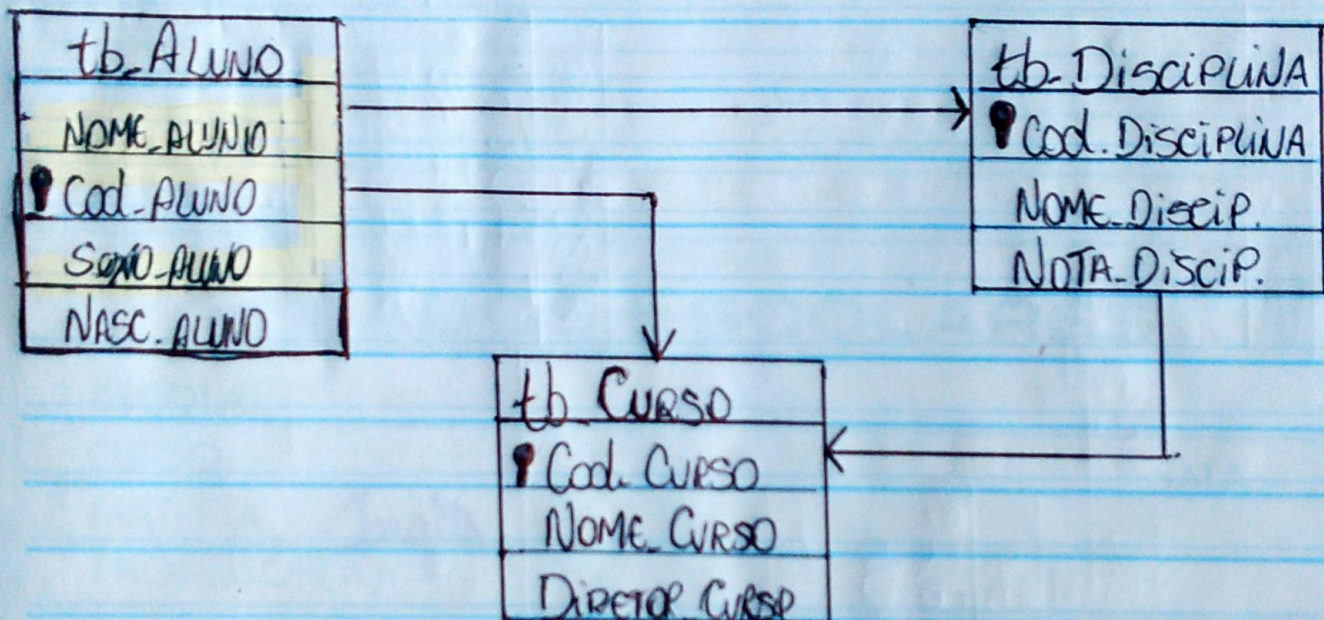 tb_ALUNO
NOME_ALUNO
Cod_ALUNO
SEXO_ALUNO
NASC_ALUNO
tb_DisciPLiNA
Cod_DisciPLiNA
NOME_DisciP.
NOTA_DisciP.
tb_CURSO
Cod_CURSO
NOME_CURSO
DiRETOR_CURSO